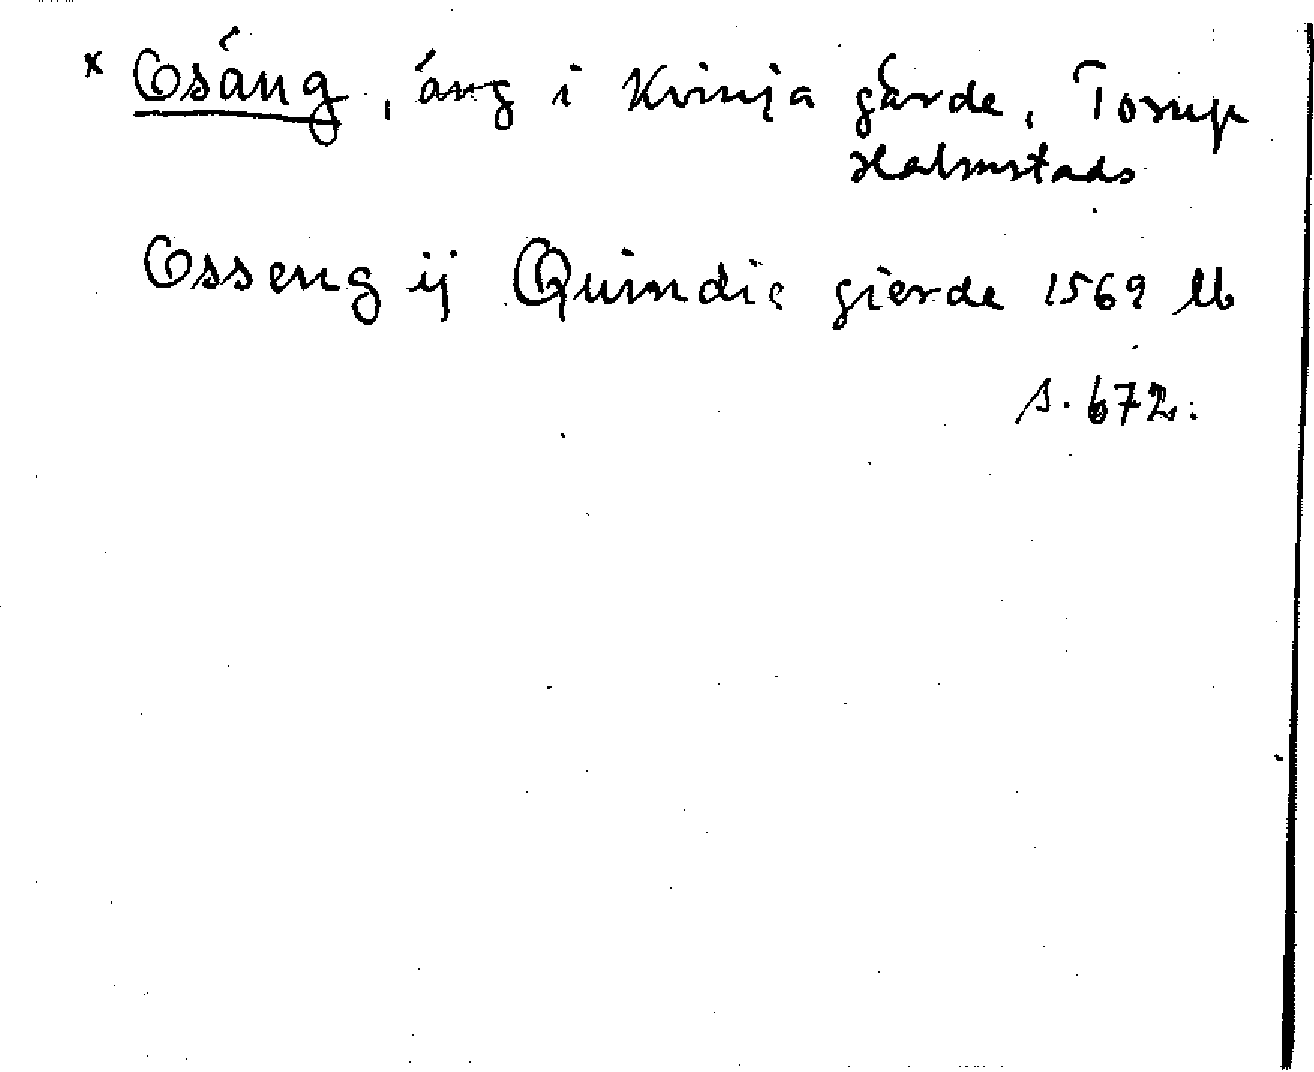 × Osäng, äng i Kvinja gärde, Torup
Halmstads
Osseng ij Quindie gierde 1569 lb
s. 672.